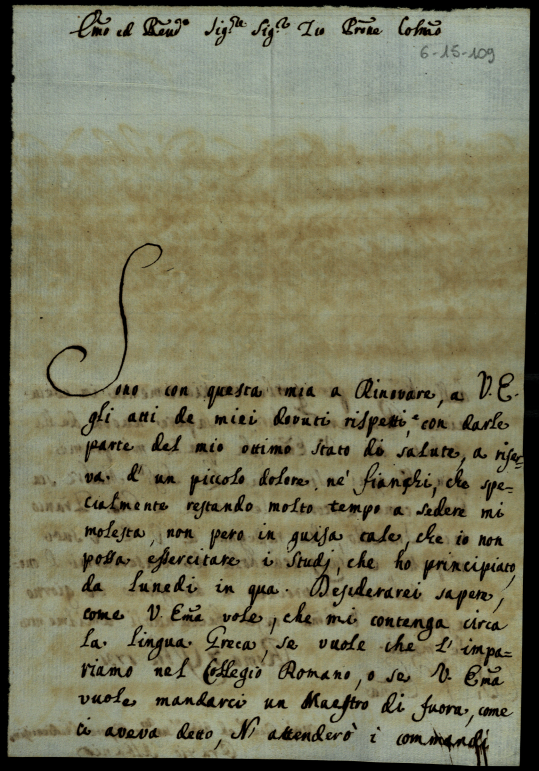 Emo ed Revd.o Sig.re Sig.r Zio Prone Colmo
6-15-109
Sono con questa mia a Rinovare, a V. E.
gli atti de miei dovuti rispetti, con darle
parte del mio ottimo stato di salute, a riser=
va d'un piccolo dolore ne' fianghi, che spe=
cialmente restando molto tempo a sedere mi
molesta, non pero in guisa tale, che io non
possa essercitare i Studj, che ho principiato,
da lunedi in qua. Desiderarei sapere,
come V. Ema vole, che mi contenga circa
la lingua Greca, se vuole che l'impa=
riamo nel Collegio Romano, o se V. Ema
vuole mandarci un Maestro di fuora, come
ci aveva detto, N' attenderò i commandi